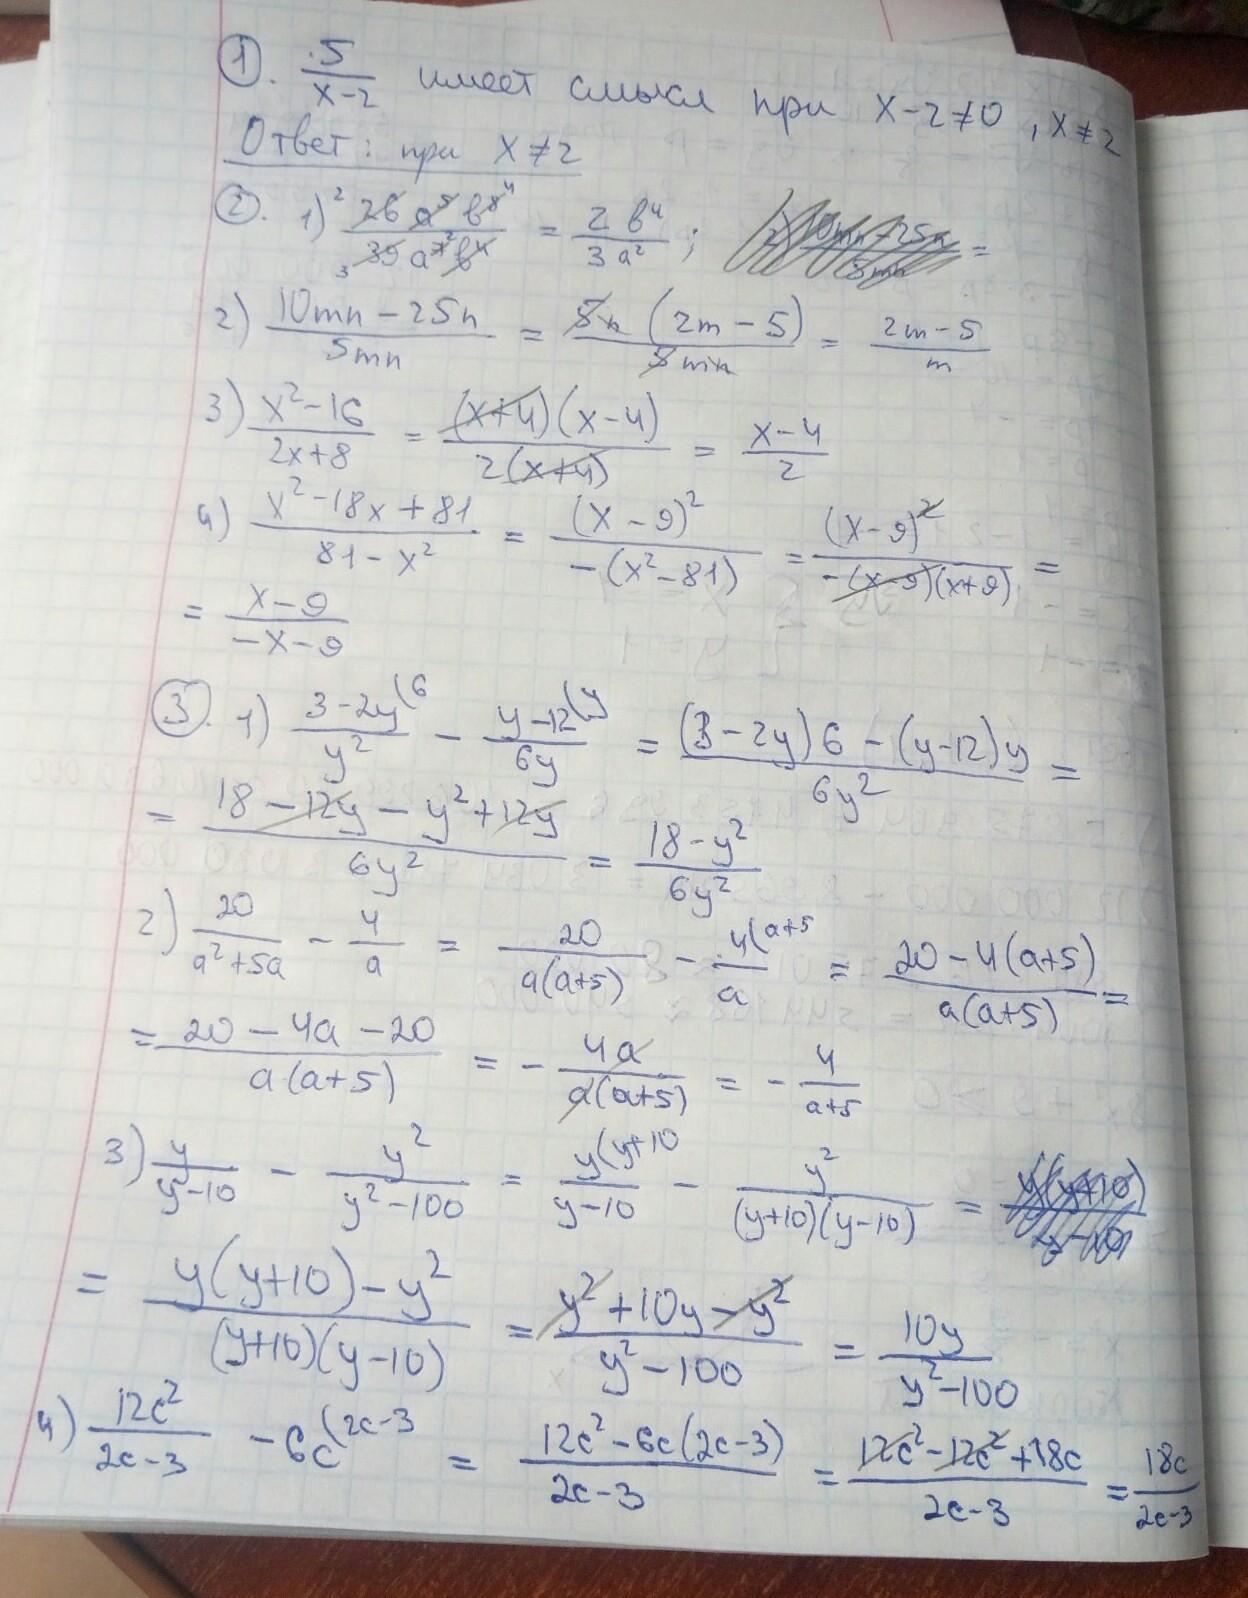 1. 5/(x-2) имеет смысл при x-2≠0, x≠2
Ответ: при x≠2
2. 1) 26a⁵b⁸/39a⁷b⁴ = 2b⁴/3a²;
2) (10mn-25n)/5mn = 5n(2m-5)/5mn = (2m-5)/m
3) (x²-16)/(2x+8) = (x+4)(x-4)/2(x+4) = (x-4)/2
4) (x²-18x+81)/(81-x²) = (x-9)²/-(x²-81) = (x-9)²/-(x-9)(x+9) =
= (x-9)/(-x-9)
3. 1) (3-2y)/y² (6 - (y-12)/6y (y = ((3-2y)6-(y-12)y)/6y² =
= (18-12y-y²+12y)/6y² = (18-y²)/6y²
2) 20/(a²+5a) - 4/a = 20/a(a+5) - 4/a (a+5 = (20-4(a+5))/a(a+5) =
= (20-4a-20)/a(a+5) = -4a/a(a+5) = -4/(a+5)
3) y/(y-10) - y²/(y²-100) = y/(y-10) (y+10 - y²/(y+10)(y-10) =
= (y(y+10)-y²)/(y+10)(y-10) = (y²+10y-y²)/(y²-100) = 10y/(y²-100)
4) 12c²/(2c-3) -6c (2c-3 = (12c²-6c(2c-3))/(2c-3) = (12c²-12c²+18c)/(2c-3) = 18c/(2c-3)